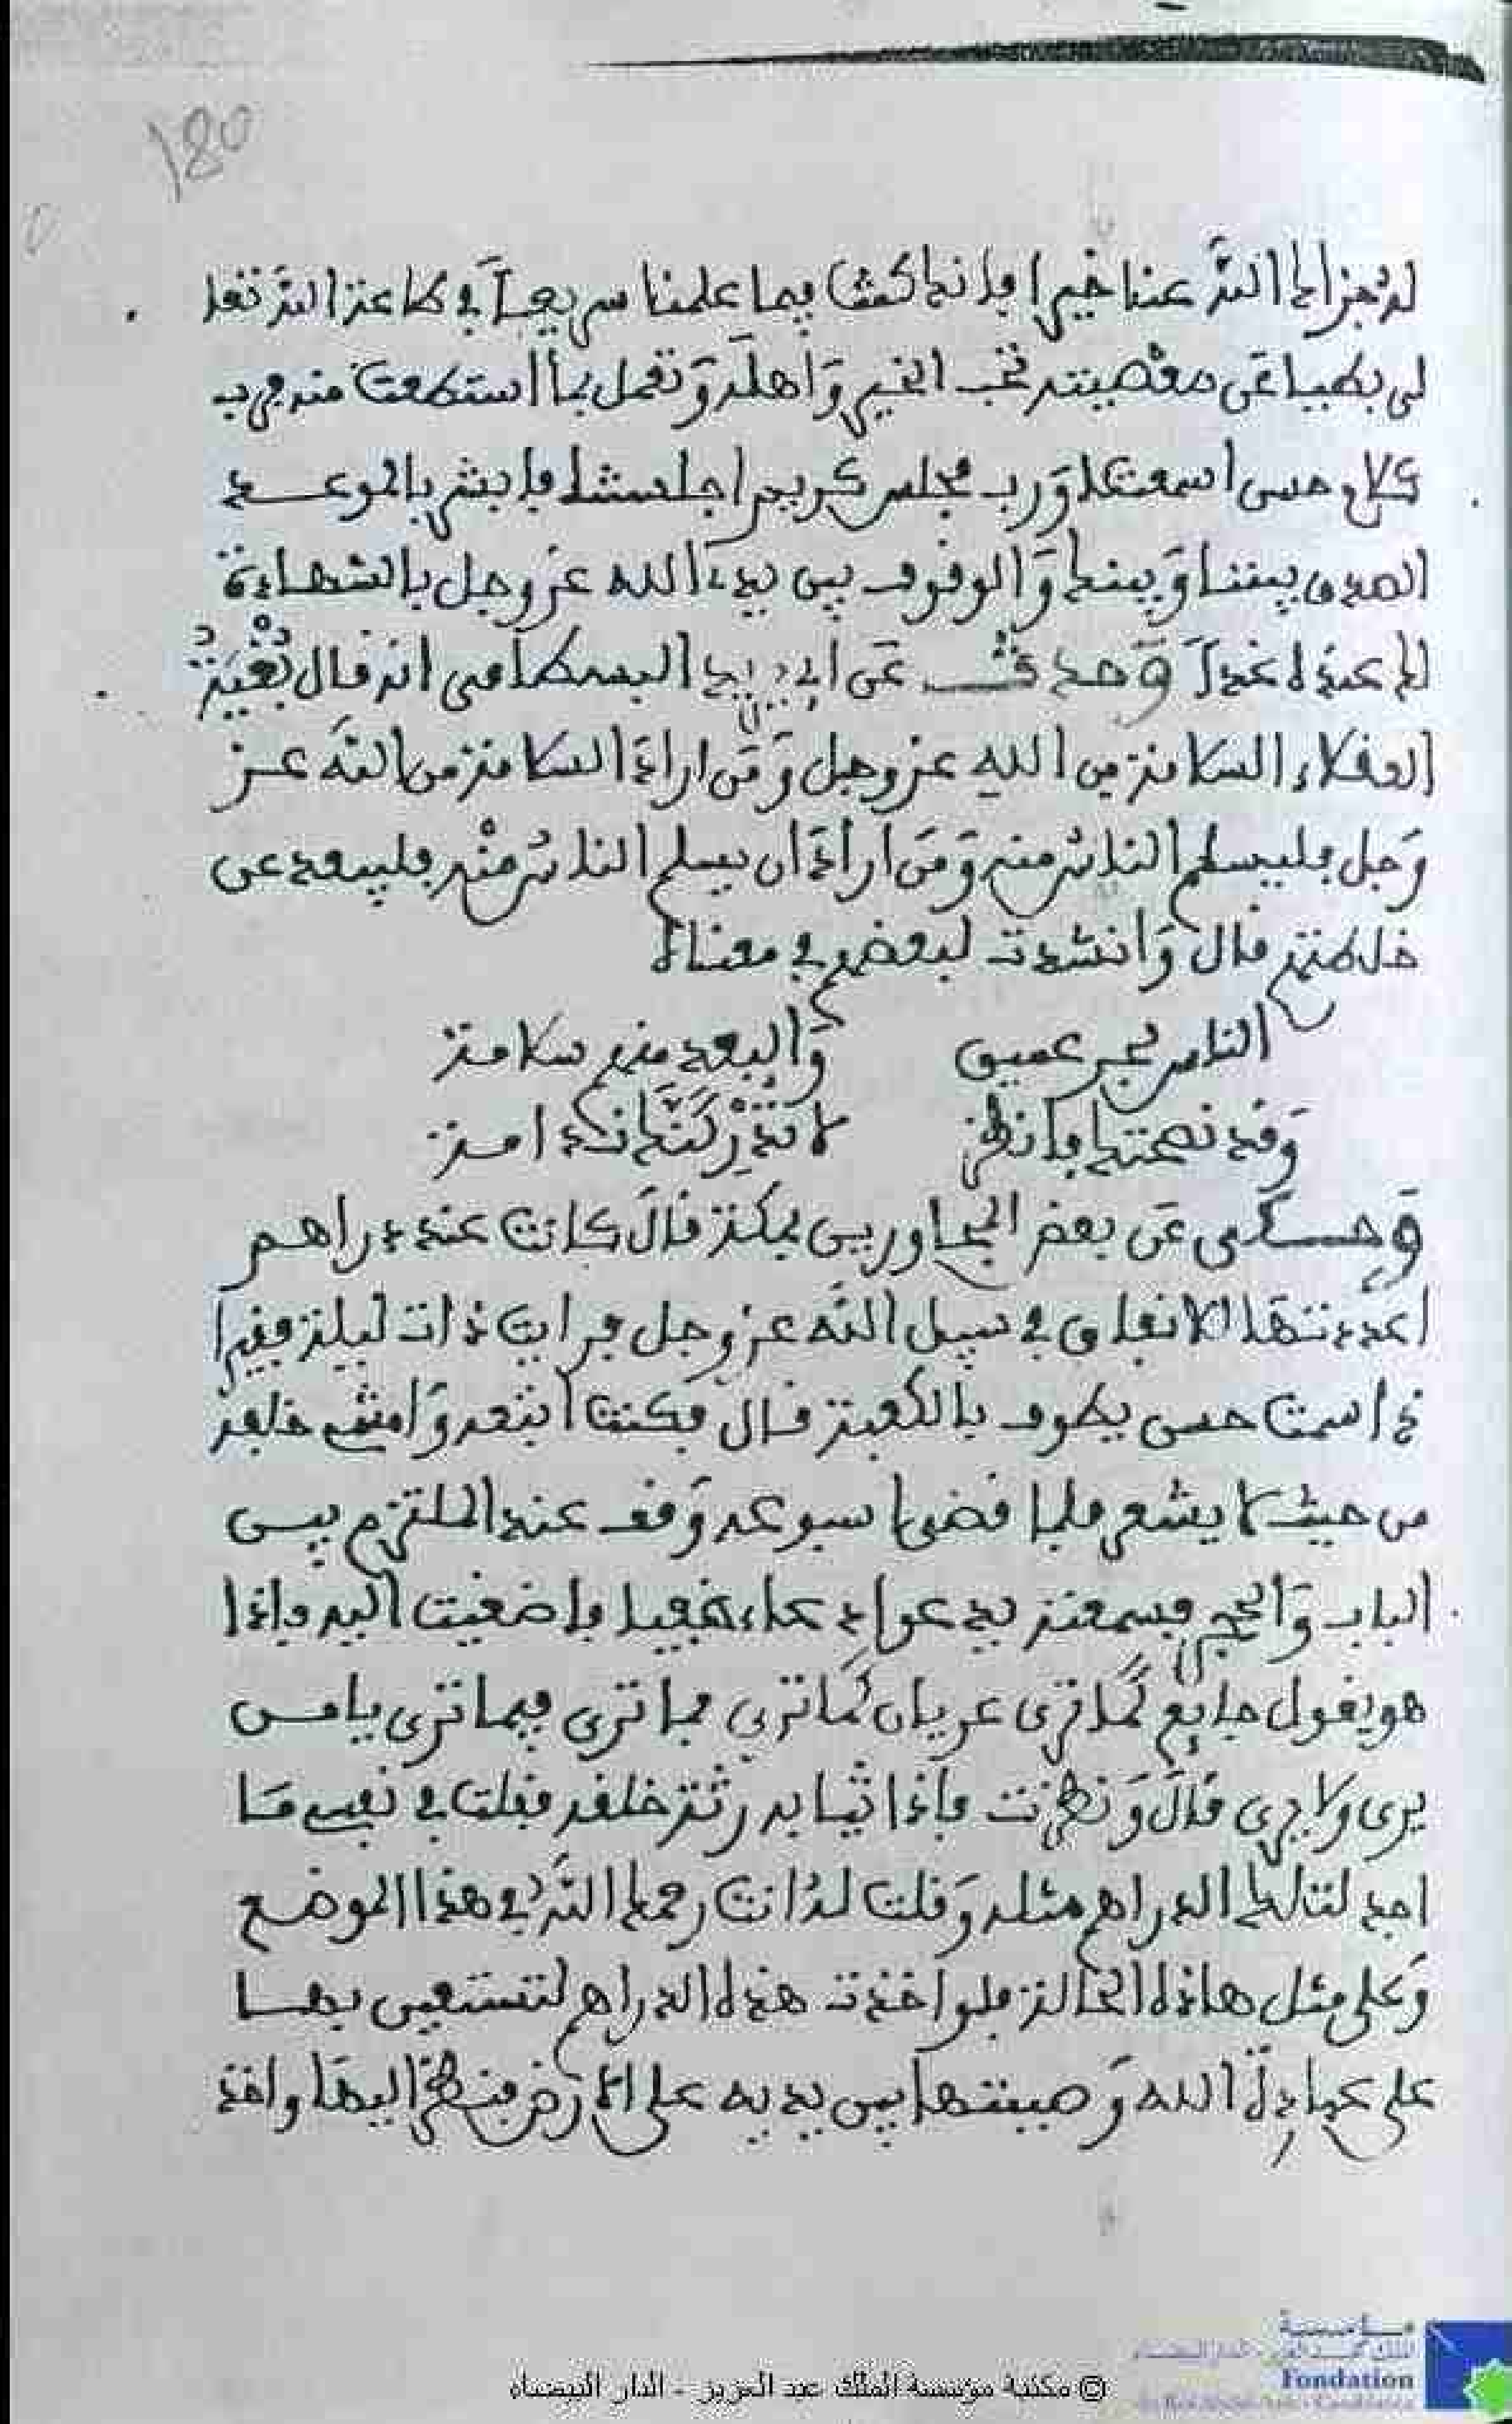 180
له جزاك الله عنا خيرا فانك كنت فيما علمنا سريعا في طاعة الله تعلى
بطيا عن معصيته تحب الخير وَاهله وَتعمل بما استطعت منه فرب
كلام حسن اسمعتنا وَرب مجلس كريم اجلستنا فابشر بالموعد
الصدق بيننا وَبينك وَالوقوف بين يدي الله عز وجل بالشهادة
لك عنده غدا وَحدثت عن ابي يزيد البسطامي انه قال بُغْيَةُ
العقلاء السلامة من الله عز وجل وَمَن اراد السلامة من الله عـز
وَجل فليسلم الناس منه وَمَن اراد ان يسلم الناس منه فليبعد عن
خلطتهم قال وَانشدت لبعضهم في معناه
الناس بحر عميق وَالبعد منهم سلامة
وَقد نصحتك فانظر لا تدركنك ندامة
وَحـكي عَن بعض المجاورين بمكة قال كانت عندي دراهم
اعددتها للانفاق في سبيل الله عز وجل فرايت ذات ليلة فقيرا
ذا سمت حسن يطوف بالكعبة قال فكنت اتبعه وَامشي خلفه
من حيث لا يشعر فلما قضى اسبوعه وَقف عند الملتزم بين
الباب وَالحجر فسمعته يدعوا دعاء خفيا فاصغيت اليه فاذا
هو يقول جايع كما ترى عريان كما ترى فما ترى فيما ترى يا من
يرى ولا يرى قال وَنظرت فإذا ثيابه رثة خلقه فقلت في نفسي مَا
اجد لتلك الدراهم مثله وَقلت له انت رحمك الله في هذا الموضع
وَعلى مثل هاذه الحالة فلو اخذت هذه الدراهم لتستعين بهـا
على عبادة الله وَصببتها بين يديه على الارض فنظر اليها واخذ
© مكتبة مؤسسة الملك عبد العزيز - الدار البيضاء
Fondation